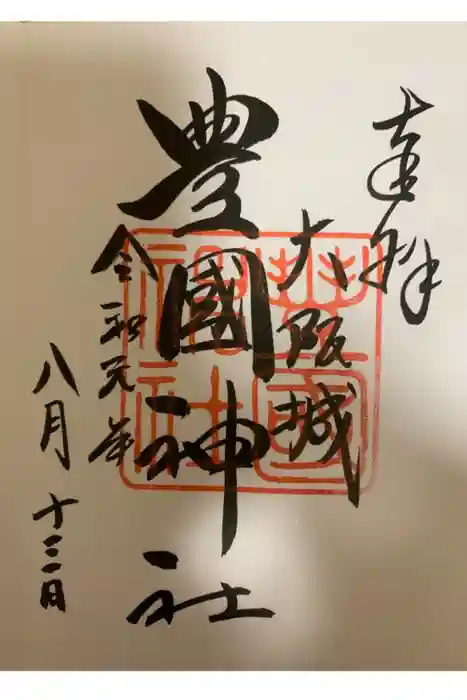 奉拝
大阪城
豊國神社
令和元年
八月
十三日